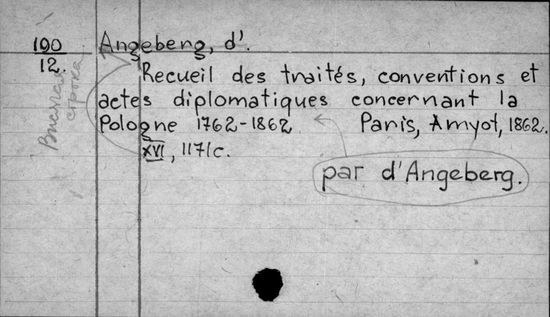 190
12.
Angeberg, d'.
Recueil des traités, conventions et
actes diplomatiques concernant la
Pologne 1762-1862 Paris, Amyot, 1862.
XVI, 1171c.
par d'Angeberg.
Висячая
строка